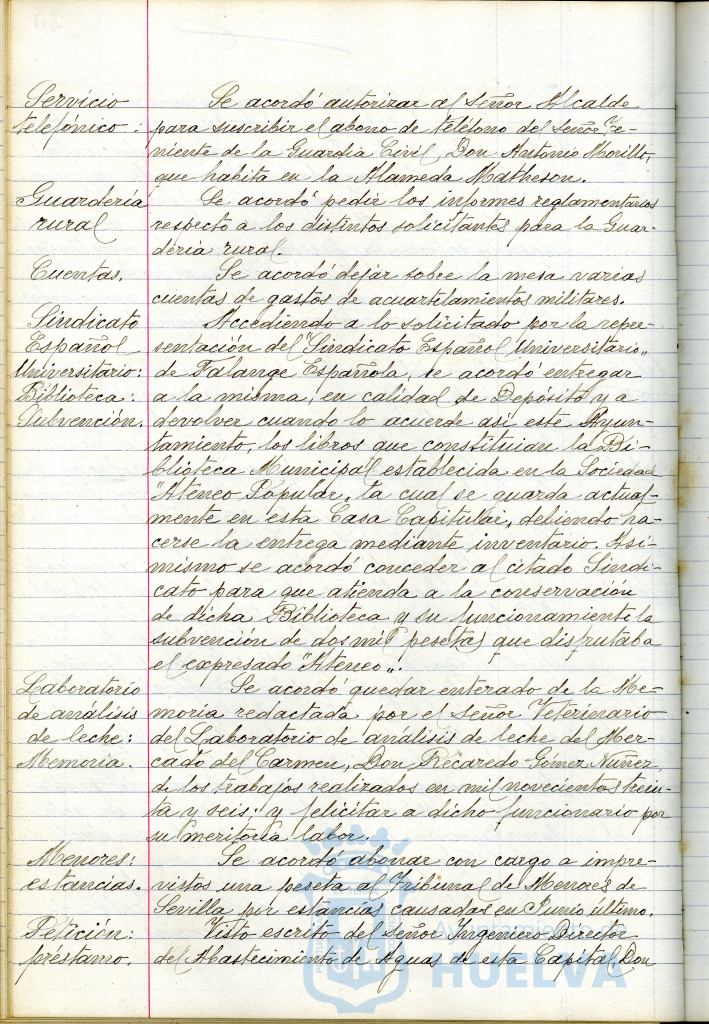 Servicio
telefónico:
Se acordó autorizar al Señor Alcalde
para suscribir el abono de teléfono del Señor Te-
niente de la Guardia Civil, Don Antonio Morillo,
que habita en la Alameda Matheson.
Guardería
rural
Se acordó pedir los informes reglamentarios
respecto a los distintos solicitantes para la Guar-
dería rural.
Cuentas.
Se acordó dejar sobre la mesa varias
cuentas de gastos de acuartelamientos militares.
Sindicato
Español
Universitario:
Biblioteca:
Subvención.
Accediendo a lo solicitado por la repre-
sentación del "Sindicato Español Universitario"
de Falange Española, se acordó entregar
a la misma, en calidad de Depósito y a
devolver cuando lo acuerde así este Ayun-
tamiento, los libros que constituían la Bi-
blioteca Municipal establecida en la Sociedad
"Ateneo Popular", la cual se guarda actual-
mente en esta Casa Capitular, debiendo ha-
cerse la entrega mediante inventario. Asi-
mismo se acordó conceder al citado Sindi-
cato para que atienda a la conservación
de dicha Biblioteca y su funcionamiento la
subvención de dos mil pesetas que disfrutaba
el expresado "Ateneo".
Laboratorio
de análisis
de leche:
Memoria.
Se acordó quedar enterado de la Me-
moria redactada por el señor Veterinario
del Laboratorio de análisis de leche del Mer-
cado del Carmen, Don Ricaredo Gómez Núñez,
de los trabajos realizados en mil novecientos trein-
ta y seis; y felicitar a dicho funcionario por
su meritoria labor.
Menores:
estancias.
Se acordó abonar con cargo a impre-
vistos una peseta al Tribunal de Menores de
Sevilla por estancias causadas en Junio último.
Petición:
préstamo.
Visto escrito del Señor Ingeniero Director
del Abastecimiento de Aguas de esta Capital, Don
Ayuntamiento de
HUELVA